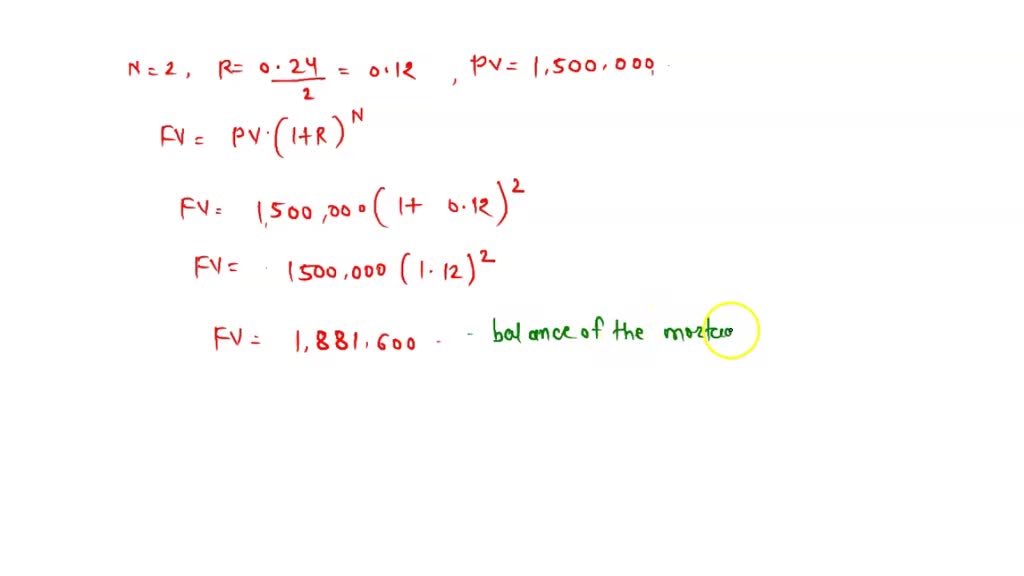 N = 2, R = 0.24/2 = 0.12, PV = 1,500,000.
FV = PV·(1+R)^N
FV = 1,500,000(1+ 0.12)^2
FV = 1500,000(1.12)^2
FV = 1,881,600 - balance of the